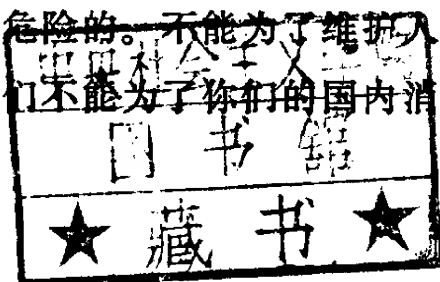 危险的。不能为了维护人
们不能为了你们的国内消
图书馆
★藏书★